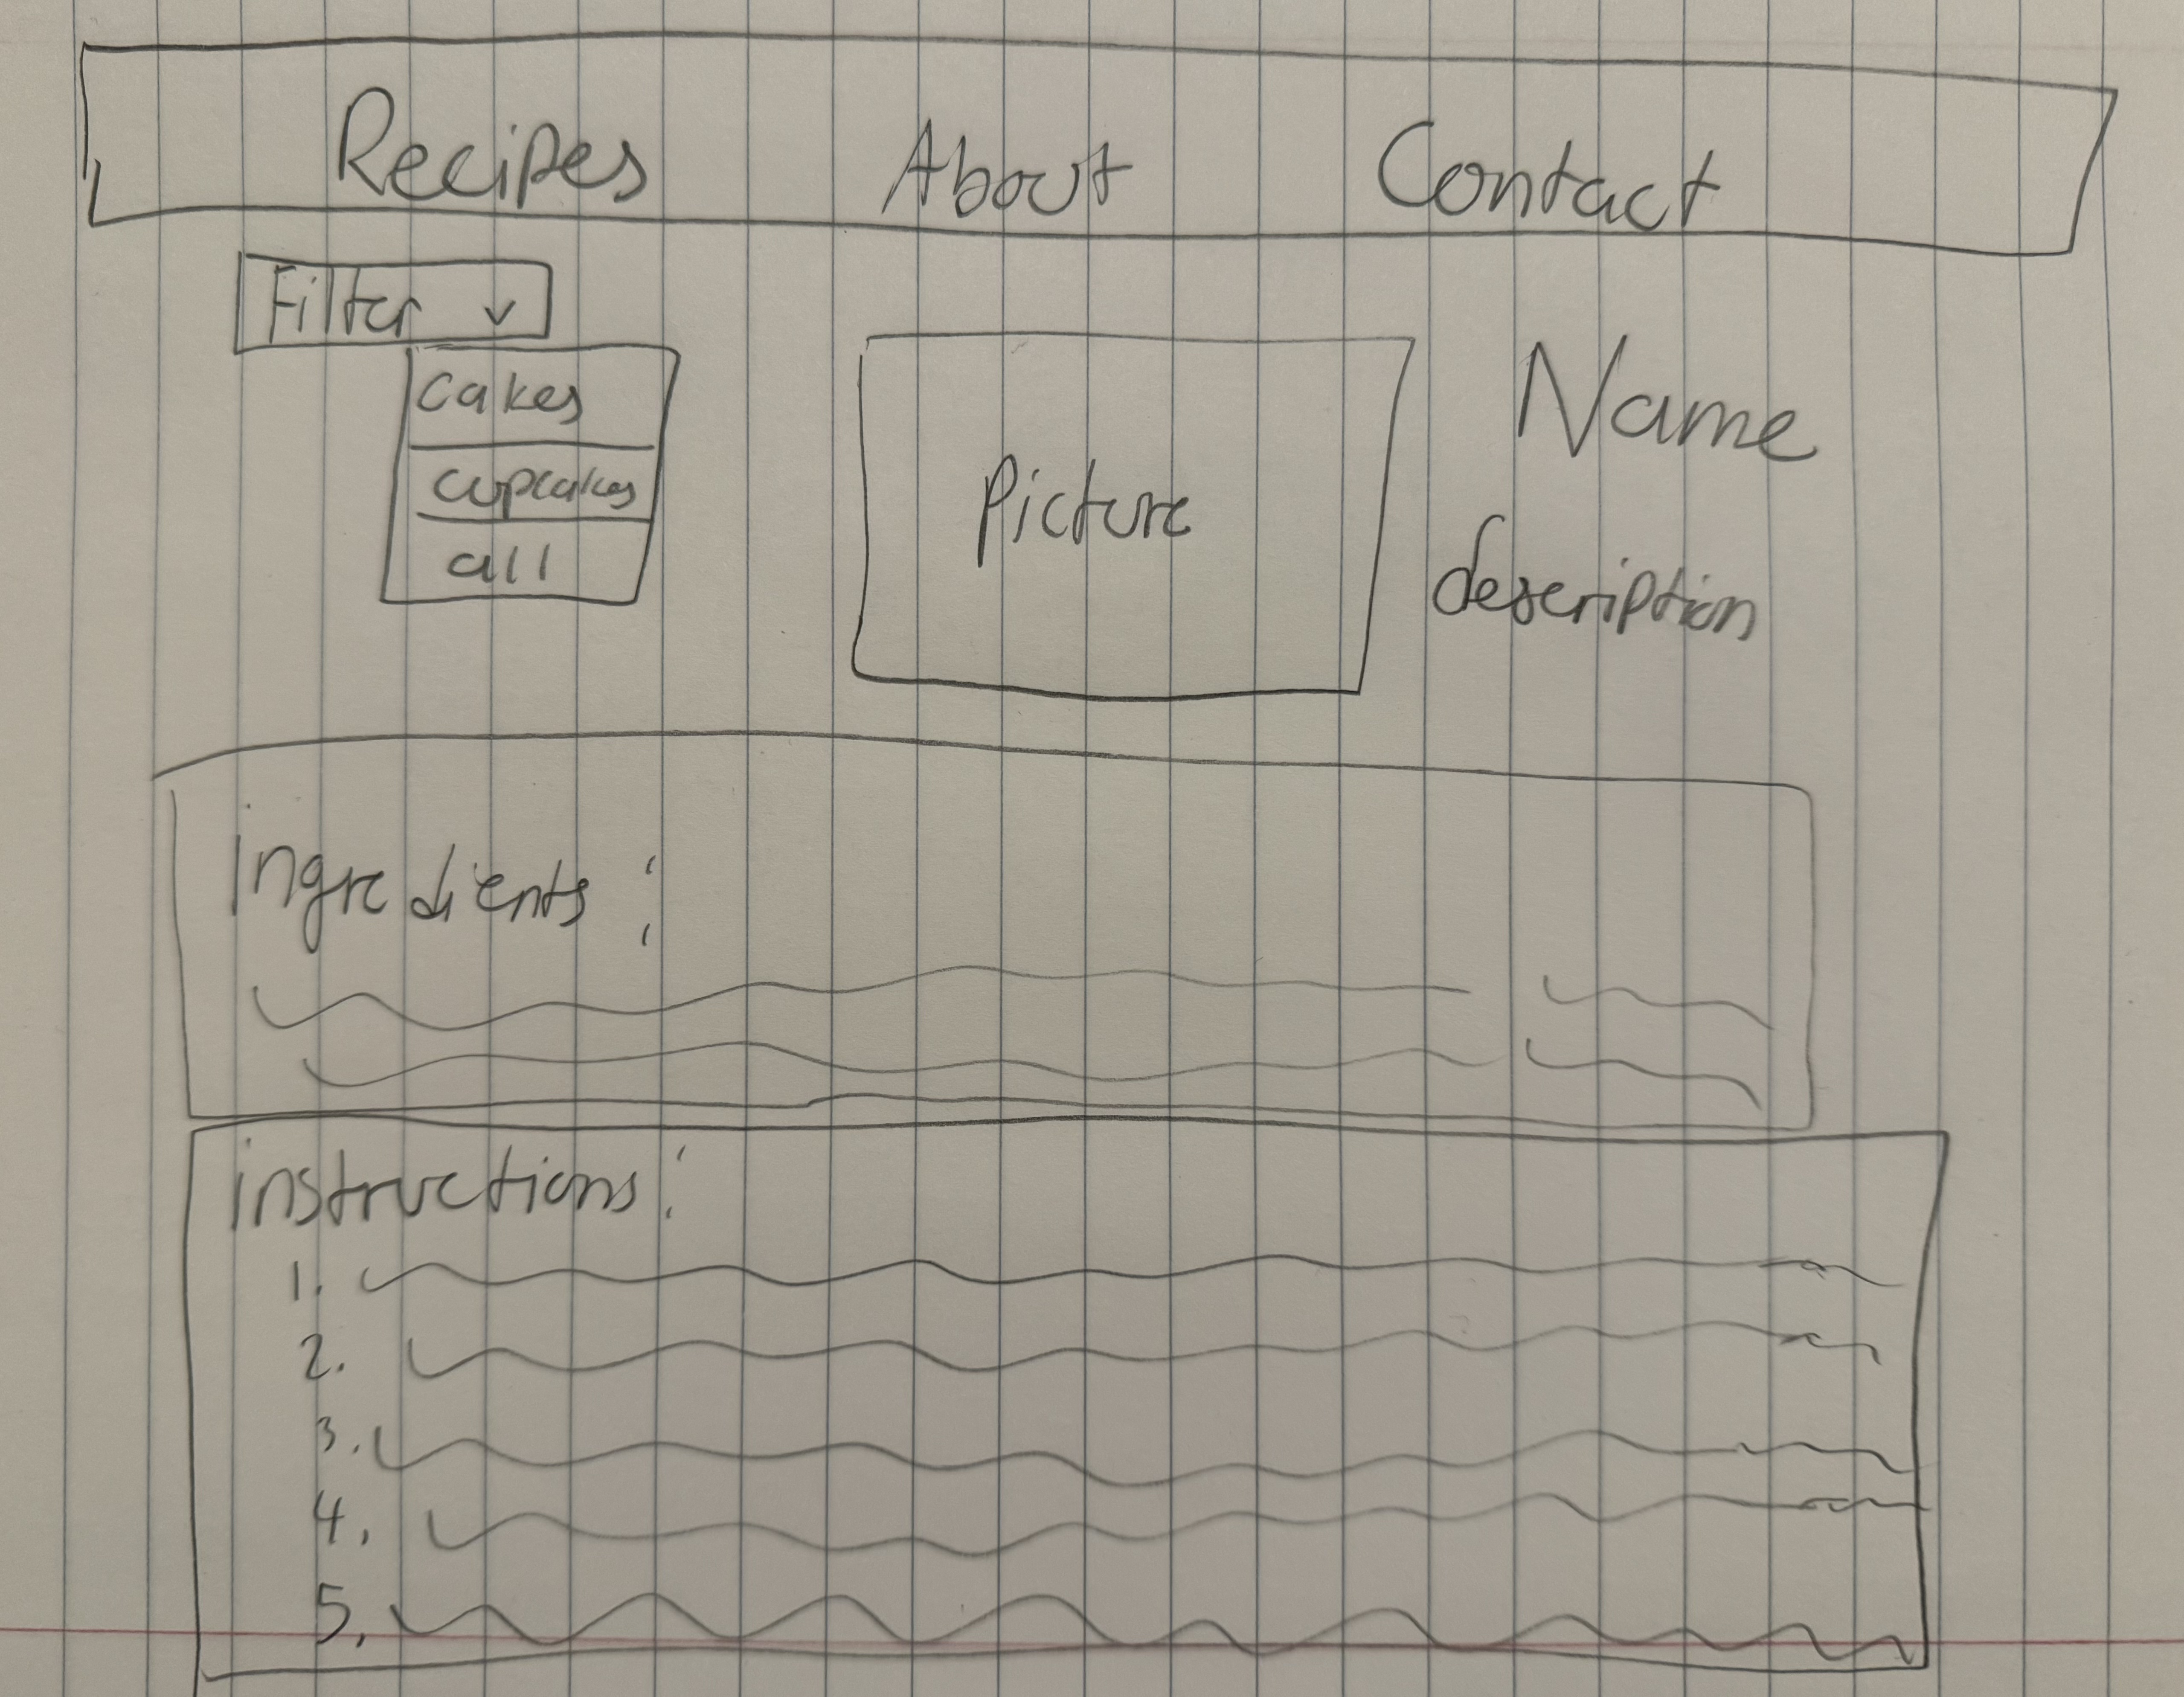 Recipes About Contact
Filter
cakes
cupcakes
all
Picture
Name
description
ingredients:
instructions:
1.
2.
3.
4.
5.